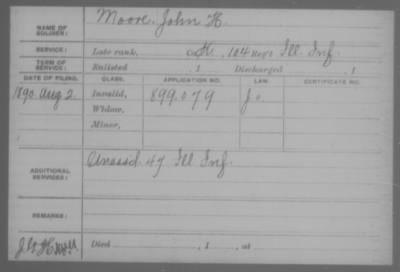 NAME OF SOLDIER: Moore, John H.
SERVICE: Late rank, Co. H, 104 Reg't Ill. Inf.
TERM OF SERVICE: Enlisted , 1 Discharged , 1
DATE OF FILING. CLASS. APPLICATION NO. LAW. CERTIFICATE NO.
1890. Aug 2. Invalid, 899.079
Widow,
Minor,
ADDITIONAL SERVICES: Unassd. 47 Ill Inf.
REMARKS:
Died , 1 , at